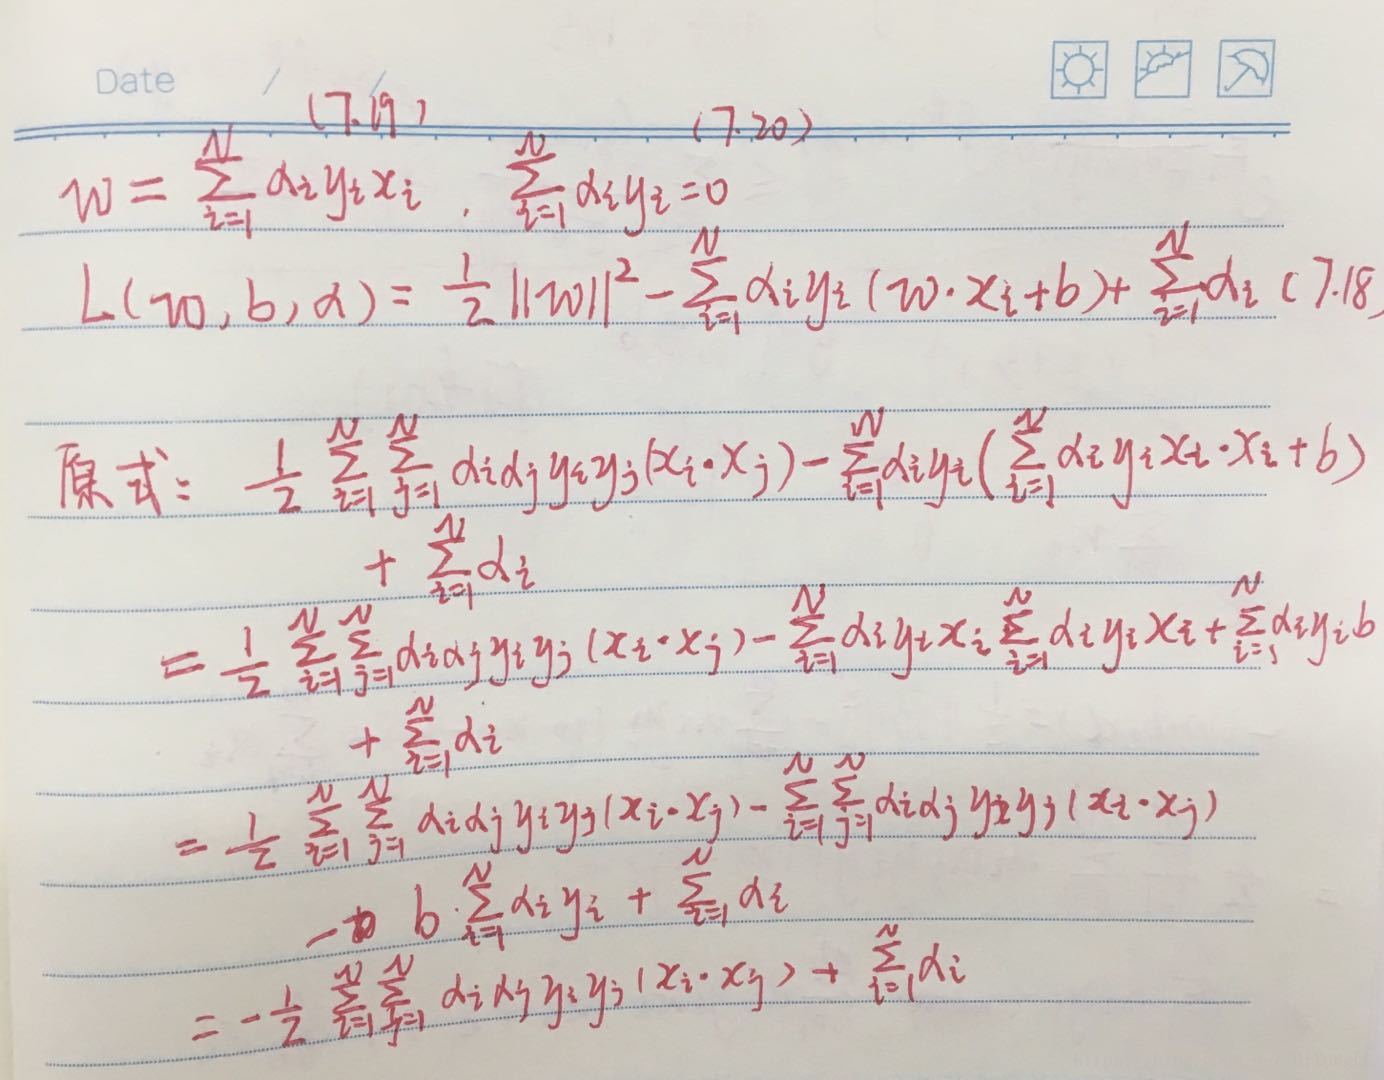 Date / /
(7.19) (7.20)
w = ∑_{i=1}^{N} α_i y_i x_i , ∑_{i=1}^{N} α_i y_i = 0
L(w, b, α) = 1/2 ||w||² - ∑_{i=1}^{N} α_i y_i (w · x_i + b) + ∑_{i=1}^{N} α_i (7.18)
原式: 1/2 ∑_{i=1}^{N} ∑_{j=1}^{N} α_i α_j y_i y_j (x_i · x_j) - ∑_{i=1}^{N} α_i y_i (∑_{i=1}^{N} α_i y_i x_i · x_i + b)
+ ∑_{i=1}^{N} α_i
= 1/2 ∑_{i=1}^{N} ∑_{j=1}^{N} α_i α_j y_i y_j (x_i · x_j) - ∑_{i=1}^{N} α_i y_i x_i ∑_{i=1}^{N} α_i y_i x_i + ∑_{i=1}^{N} α_i y_i b
+ ∑_{i=1}^{N} α_i
= 1/2 ∑_{i=1}^{N} ∑_{j=1}^{N} α_i α_j y_i y_j (x_i · x_j) - ∑_{i=1}^{N} ∑_{j=1}^{N} α_i α_j y_i y_j (x_i · x_j)
- b · ∑_{i=1}^{N} α_i y_i + ∑_{i=1}^{N} α_i
= - 1/2 ∑_{i=1}^{N} ∑_{j=1}^{N} α_i α_j y_i y_j (x_i · x_j) + ∑_{i=1}^{N} α_i